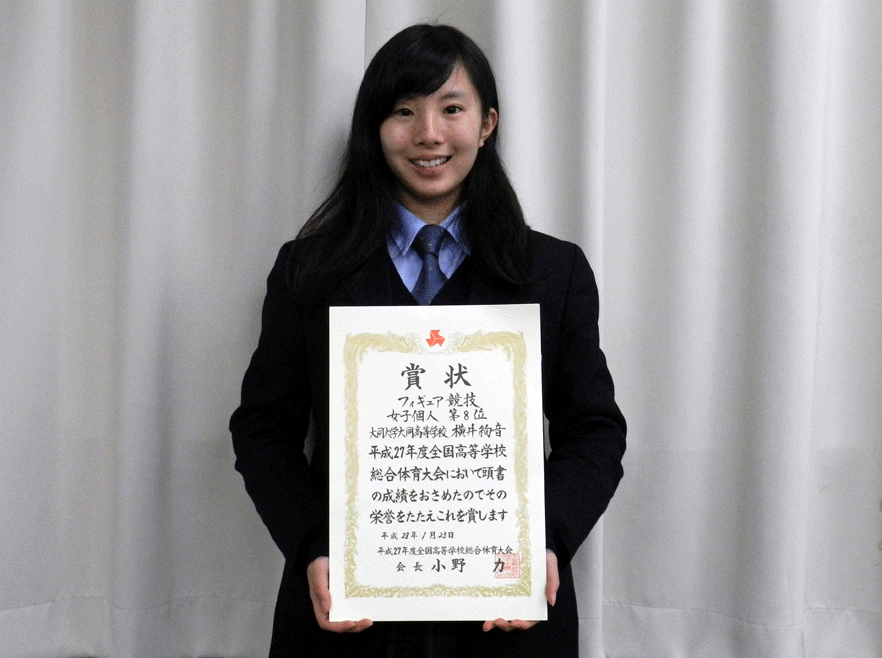 賞状
フィギュア競技
女子個人 第8位
大同大学大同高等学校 横井絢音
平成27年度全国高等学校
総合体育大会において頭書
の成績をおさめたのでその
栄誉をたたえこれを賞します
平成28年1月23日
平成27年度全国高等学校総合体育大会
会長 小野 力